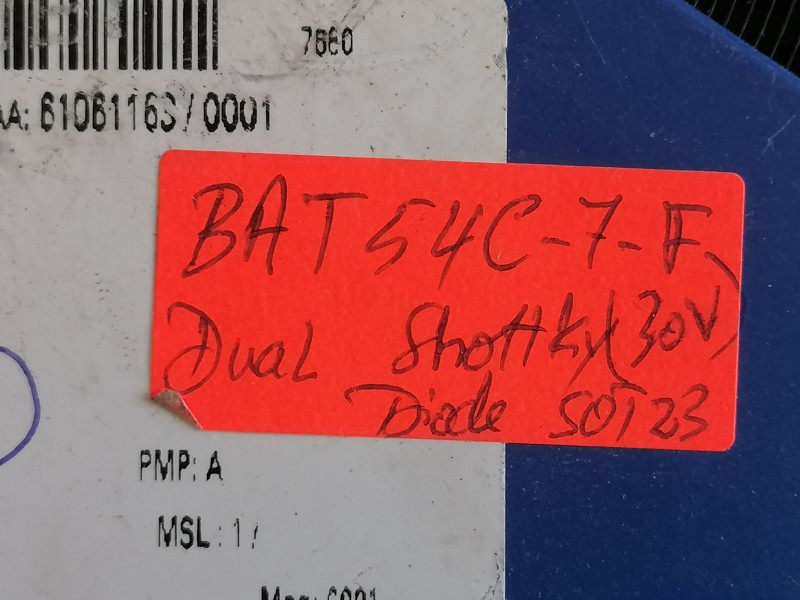 7660
AA: 6106116S/0001
BAT54C-7-F
Dual Shottky (30V)
Diode SOT23
PMP: A
MSL: 1 /